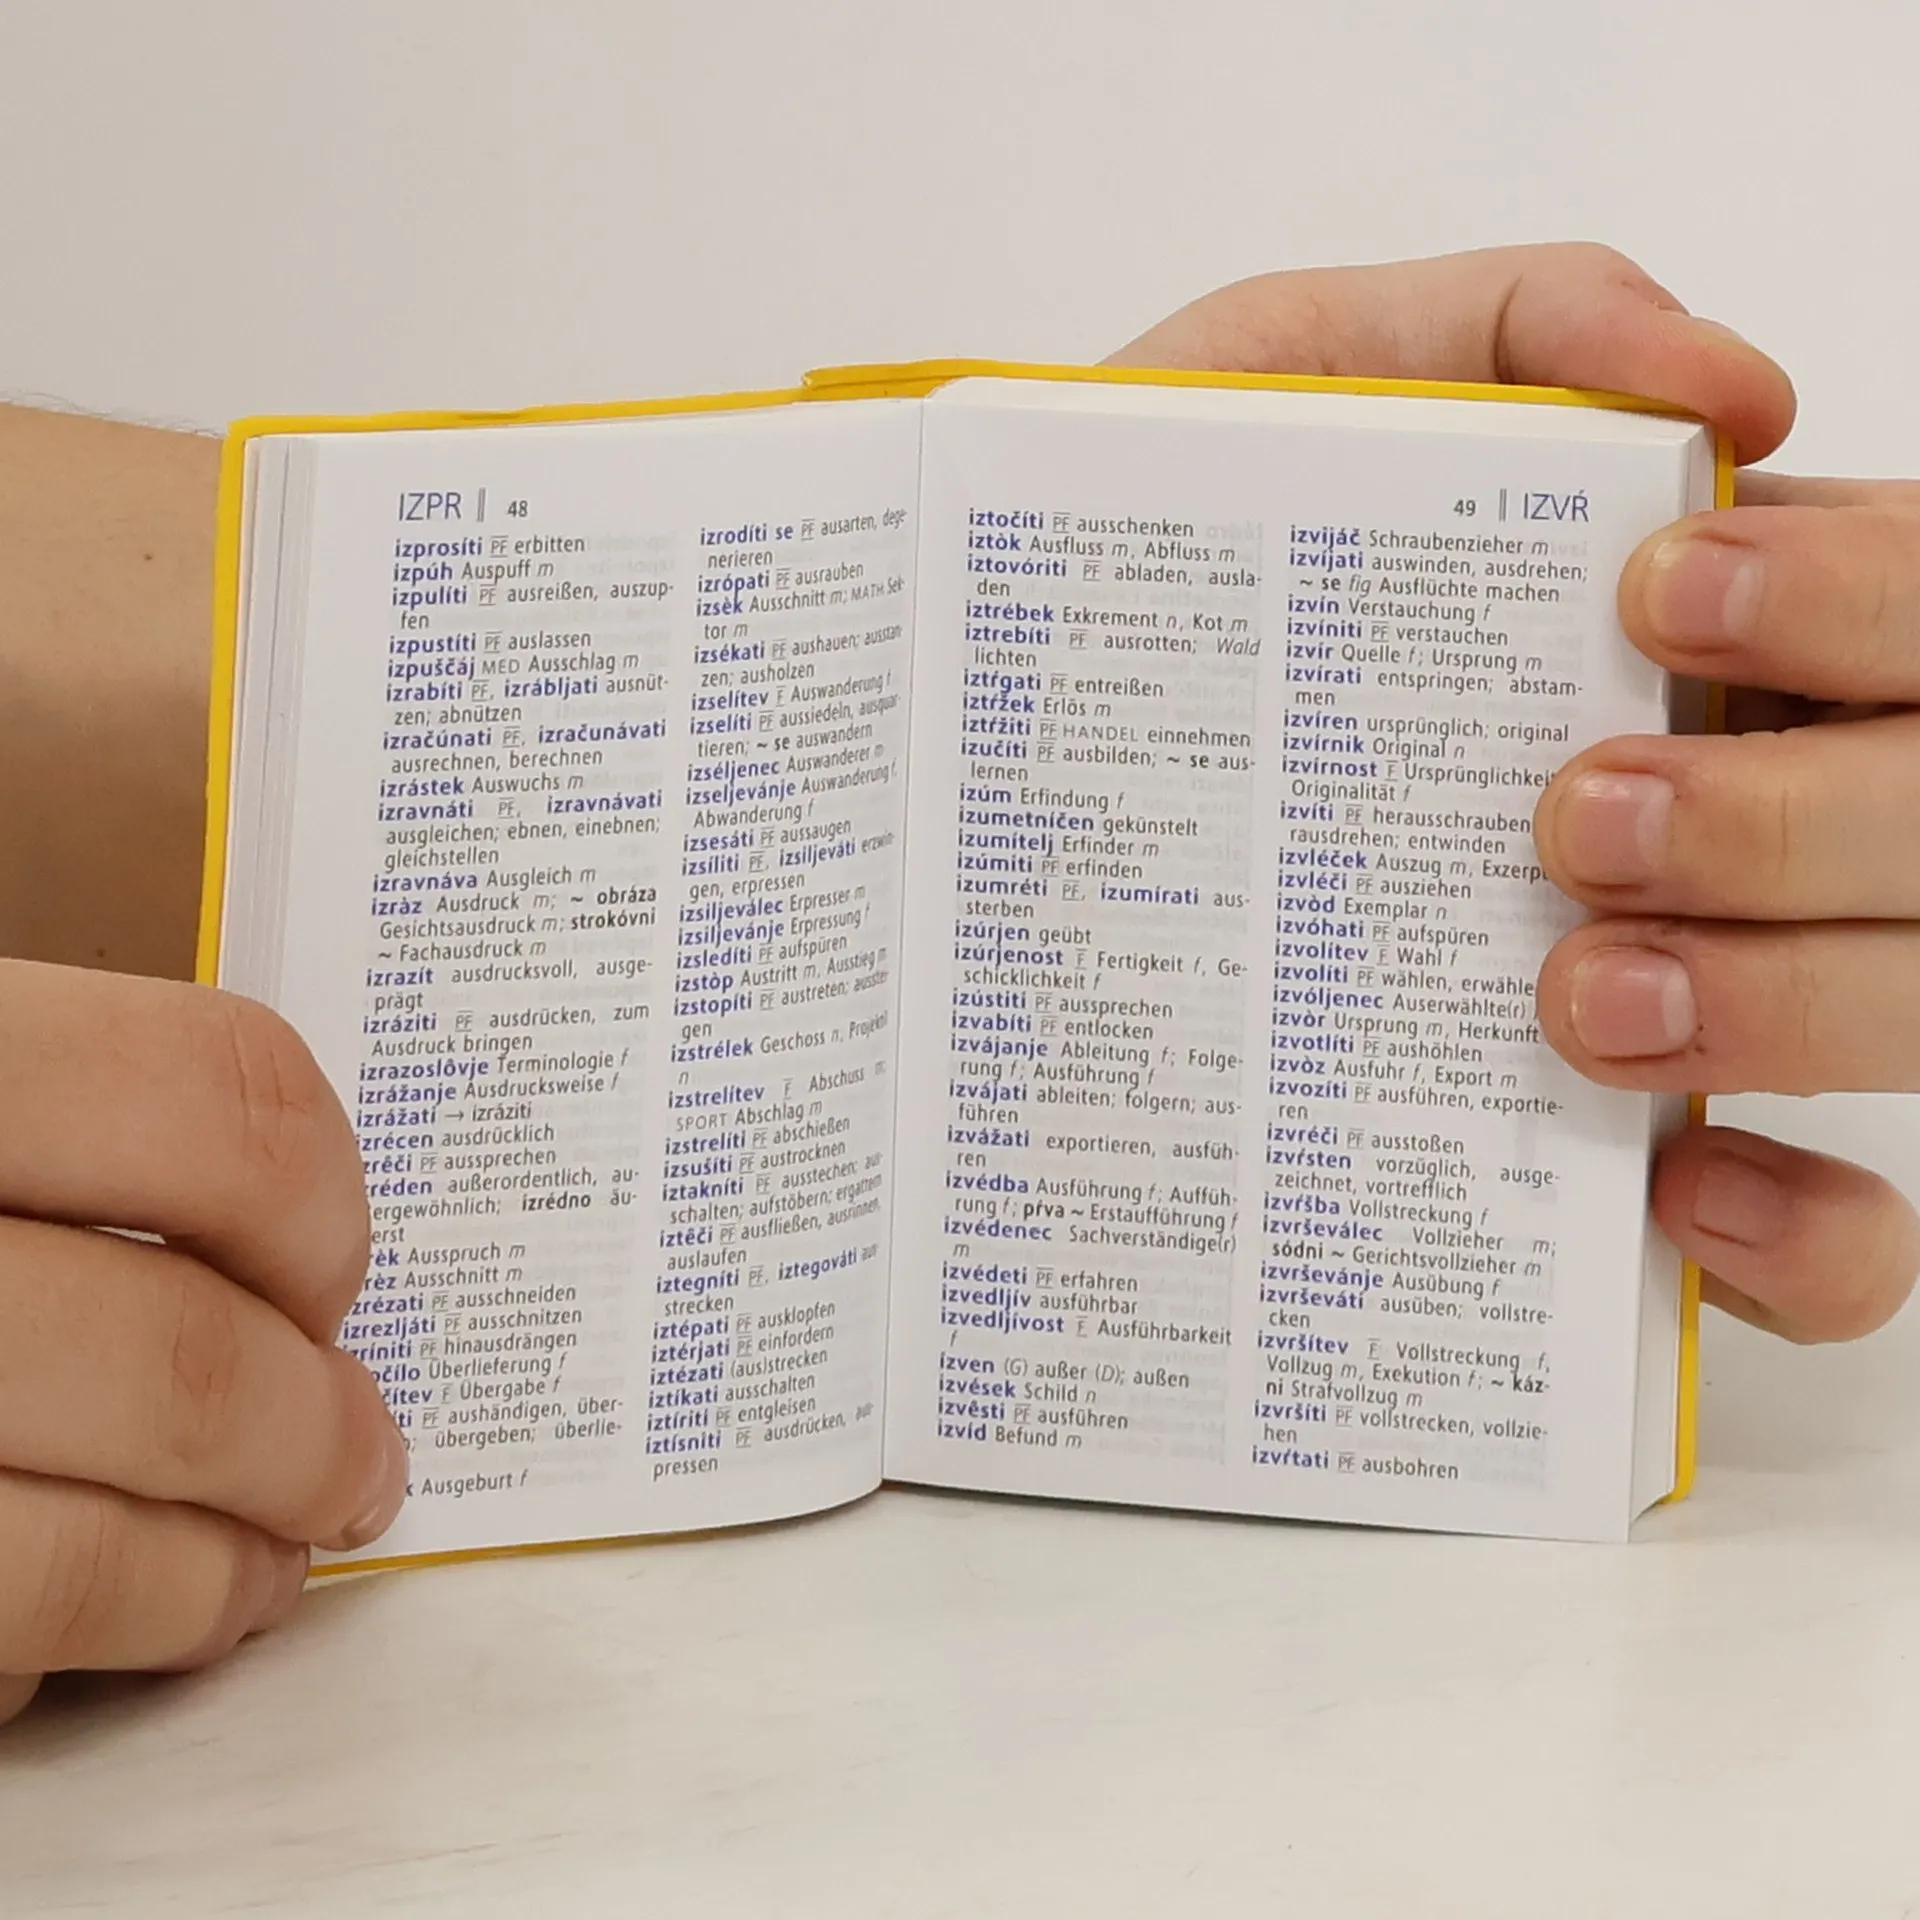 IZPR ‖ 48
izprosíti PF erbitten
izpúh Auspuff m
izpulíti PF ausreißen, auszup-
fen
izpustíti PF auslassen
izpuščáj MED Ausschlag m
izrabíti PF, izrábljati ausnüt-
zen; abnützen
izračúnati PF, izračunávati
ausrechnen, berechnen
izrástek Auswuchs m
izravnáti PF, izravnávati
ausgleichen; ebnen, einebnen;
gleichstellen
izravnáva Ausgleich m
izràz Ausdruck m; ~ obráza
Gesichtsausdruck m; strokóvni
~ Fachausdruck m
izrazít ausdrucksvoll, ausge-
prägt
izráziti PF ausdrücken, zum
Ausdruck bringen
izrazoslôvje Terminologie f
izrážanje Ausdrucksweise f
izrážati → izráziti
izrécen ausdrücklich
zrêči PF aussprechen
réden außerordentlich, au-
ergewöhnlich; izrédno äu-
erst
rèk Ausspruch m
rèz Ausschnitt m
zrézati PF ausschneiden
izrezljáti PF ausschnitzen
zríniti PF hinausdrängen
očílo Überlieferung f
čítev F Übergabe f
íti PF aushändigen, über-
; übergeben; überlie-
k Ausgeburt f
izrodíti se PF ausarten, dege-
nerieren
izrópati PF ausrauben
izsèk Ausschnitt m; MATH Sek-
tor m
izsékati PF aushauen; ausstan-
zen; ausholzen
izselítev F Auswanderung f
izselíti PF aussiedeln, ausquar-
tieren; ~ se auswandern
izséljenec Auswanderer m
izseljevánje Auswanderung f,
Abwanderung f
izsesáti PF aussaugen
izsíliti PF, izsiljeváti erzwin-
gen, erpressen
izsiljeválec Erpresser m
izsiljevánje Erpressung f
izsledíti PF aufspüren
izstòp Austritt m, Ausstieg m
izstopíti PF austreten;ausstei-
gen
izstrélek Geschoss n, Projektil
n
izstrelítev F Abschuss m;
SPORT Abschlag m
izstrelíti PF abschießen
izsušíti PF austrocknen
iztakníti PF ausstechen; aus-
schalten; aufstöbern; ergattern
iztêči PF ausfließen, ausrinnen,
auslaufen
iztegníti PF, iztegováti aus-
strecken
iztépati PF ausklopfen
iztérjati PF einfordern
iztézati (aus)strecken
iztíkati ausschalten
iztíriti PF entgleisen
iztísniti PF ausdrücken, aus-
pressen
49 ‖ IZVŔ
iztočíti PF ausschenken
iztòk Ausfluss m, Abfluss m
iztovóriti PF abladen, ausla-
den
iztrébek Exkrement n, Kot m
iztrebíti PF ausrotten; Wald
lichten
iztŕgati PF entreißen
iztŕžek Erlös m
iztŕžiti PF HANDEL einnehmen
izučíti PF ausbilden; ~ se aus-
lernen
izúm Erfindung f
izumetníčen gekünstelt
izumítelj Erfinder m
izúmiti PF erfinden
izumréti PF, izumírati aus-
sterben
izúrjen geübt
izúrjenost F Fertigkeit f, Ge-
schicklichkeit f
izústiti PF aussprechen
izvabíti PF entlocken
izvájanje Ableitung f; Folge-
rung f; Ausführung f
izvájati ableiten; folgern; aus-
führen
izvážati exportieren, ausfüh-
ren
izvédba Ausführung f; Auffüh-
rung f; pŕva ~ Erstaufführung f
izvédenec Sachverständige(r)
m
izvédeti PF erfahren
izvedljív ausführbar
izvedljívost F Ausführbarkeit
f
ízven (G) außer (D); außen
izvések Schild n
izvêsti PF ausführen
izvíd Befund m
izvijáč Schraubenzieher m
izvíjati auswinden, ausdrehen;
~ se fig Ausflüchte machen
izvín Verstauchung f
izvíniti PF verstauchen
izvír Quelle f; Ursprung m
izvírati entspringen; abstam-
men
izvíren ursprünglich; original
izvírnik Original n
izvírnost F Ursprünglichkeit
Originalität f
izvíti PF herausschrauben
rausdrehen; entwinden
izvléček Auszug m, Exzerpt
izvléči PF ausziehen
izvòd Exemplar n
izvóhati PF aufspüren
izvolítev F Wahl f
izvolíti PF wählen, erwähle
izvóljenec Auserwählte(r)
izvòr Ursprung m, Herkunft
izvotlíti PF aushöhlen
izvòz Ausfuhr f, Export m
izvozíti PF ausführen, exportie-
ren
izvréči PF ausstoßen
izvŕsten vorzüglich, ausge-
zeichnet, vortrefflich
izvŕšba Vollstreckung f
izvrševálec Vollzieher m;
sódni ~ Gerichtsvollzieher m
izvrševánje Ausübung f
izvrševáti ausüben; vollstre-
cken
izvršítev F Vollstreckung f,
Vollzug m, Exekution f; ~ káz-
ni Strafvollzug m
izvršíti PF vollstrecken, vollzie-
hen
izvŕtati PF ausbohren